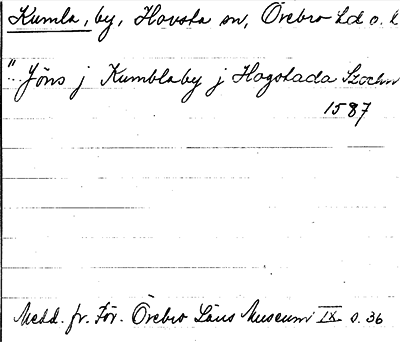 Kumla, by, Hovsta sn, Örebro hd o. l
"... Jöns j Kumblaby j Hogstada Sochn
1587
Medd. fr. För. Örebro Läns Museum IX s. 36